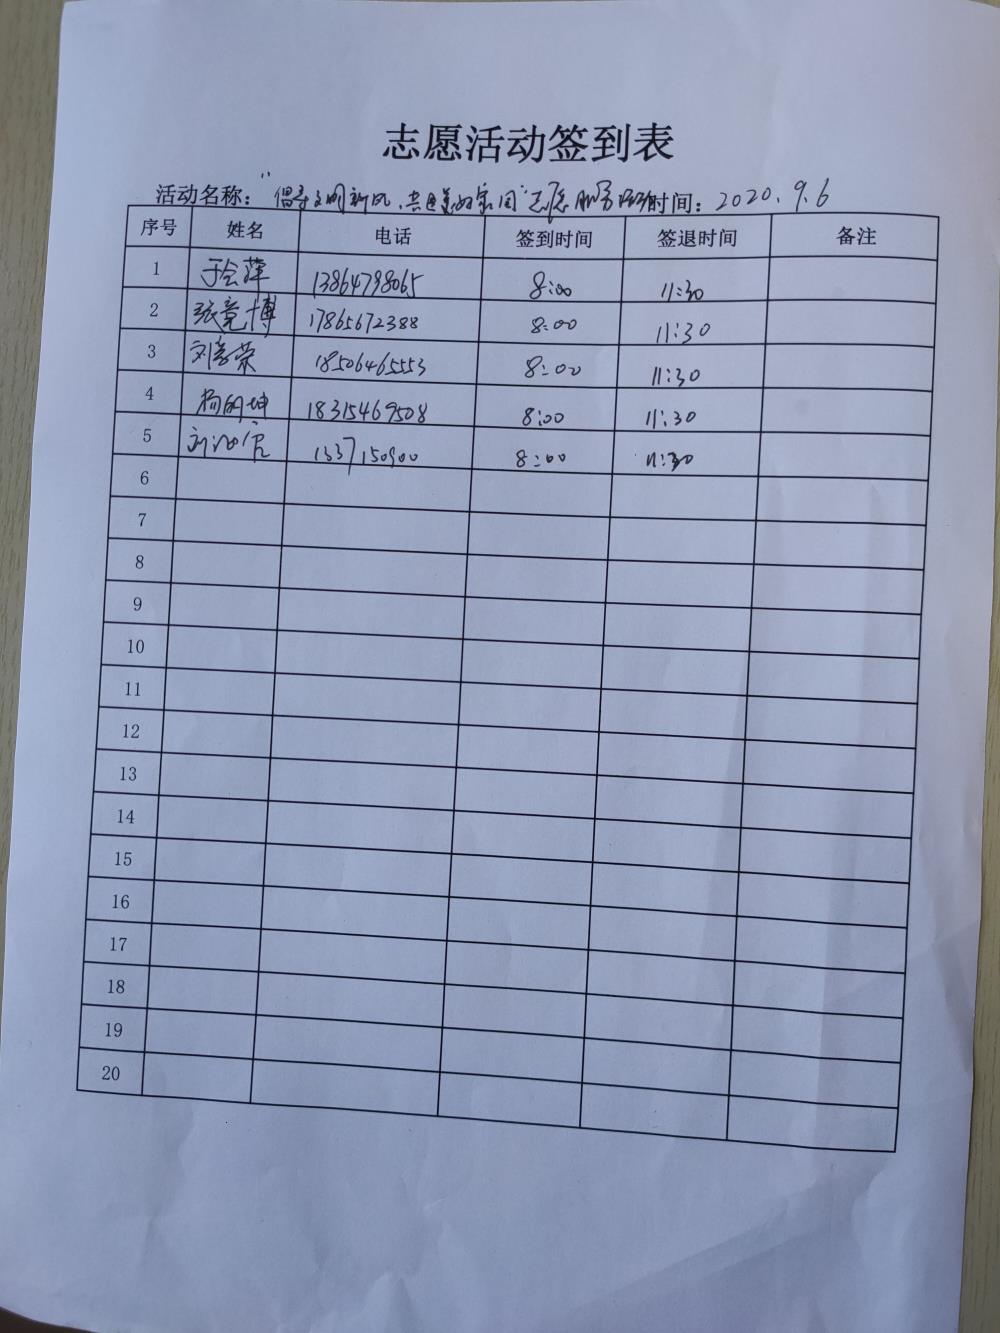 志愿活动签到表
活动名称：“倡导文明新风、共建美好家园”志愿服务活动 时间：2020.9.6
序号 姓名 电话 签到时间 签退时间 备注
1 于会萍 13864798065 8:00 11:30
2 张竟博 17865672388 8:00 11:30
3 刘彦荣 18506465553 8:00 11:30
4 杨明坤 18315469508 8:00 11:30
5 刘 1337150900 8:00 11:30
6
7
8
9
10
11
12
13
14
15
16
17
18
19
20